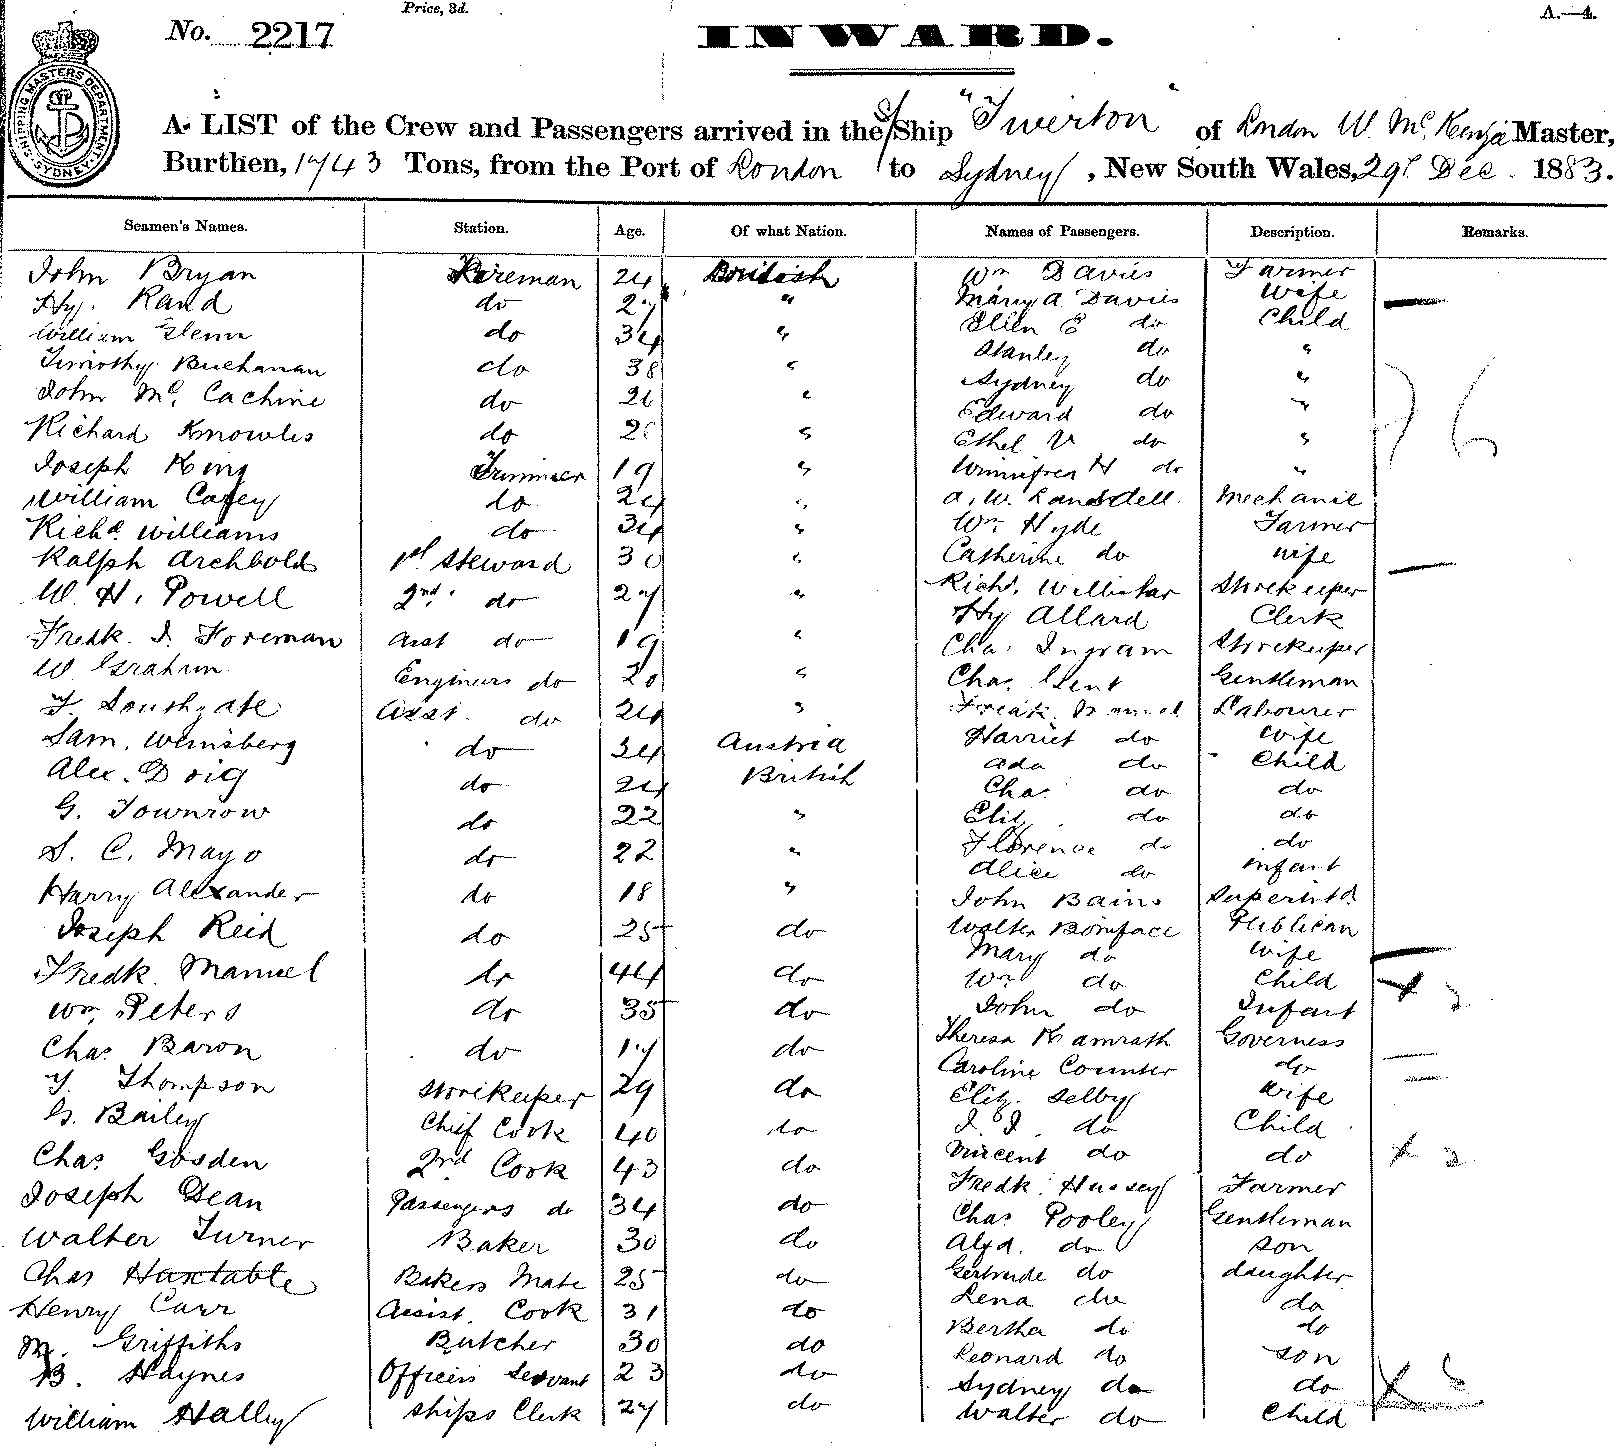 Price, 3d.
A.—4.
No. 2217
INWARD.
SHIPPING MASTERS DEPARTMENT
SYDNEY
A LIST of the Crew and Passengers arrived in the S/Ship "Tiverton" of London W. Mc. Kenzie Master,
Burthen, 1743 Tons, from the Port of London to Sydney, New South Wales, 29t Dec. 1883.
Seamen's Names. Station. Age. Of what Nation. Names of Passengers. Description. Remarks.
John Bryan Fireman 24 British Wm Davies Farmer
Hy. Rand do 27 " Mary A Davies Wife
William Glenn do 34 " Ellen E do Child
Timothy Buchanan do 38 " Stanley do "
John Mc. Cachine do 26 " Sydney do "
Richard Knowles do " Edward do "
Joseph King Trimmer 19 " Ethel V do "
William Carey do 24 " Winnifred H do "
Richd Williams do 34 " A. W. Lansdell. Mechanic
Ralph Archbold 1st Steward 30 " Wm Hyde Farmer
W. H. Powell 2nd do 27 " Catherine do wife
Fredk. J. Foreman Asst do 19 " Richd. Storekeeper
W Graham Engineers do 20 " Hy Allard Clerk
T. Southgate Asst. do 24 " Chas. Ingram Storekeeper
Sam. Weinsberg do 34 Austria Chas. Gent Gentleman
Alex. Doig do 24 British Fredk. Labourer
G. Townrow do 22 " Harriet do Wife
S. C. Mayo do 22 " Ada do Child
Harry Alexander do 18 " Chas. do do
Joseph Reid do 25 do Eliz. do do
Fredk. Manuel do 44 do Florence do do
Wm. Peters do 35 do Alice do infant
Chas. Baron do 17 do John Bains Superintd.
T. Thompson Storekeeper 29 do Walter Boniface Publican
G. Bailey Chief Cook 40 do Mary do Wife
Chas. Gosden 2nd Cook 43 do Wm do Child
Joseph Dean Passengers do 34 do John do Infant
Walter Turner Baker 30 do Theresa Kamrath Governess
Chas Huxtable Bakers Mate 25 do Caroline Counter do
Henry Carr Assist. Cook 31 do Eliz. Selby Wife
M. Griffiths Butcher 30 do J. J. do Child
B. Haynes Officers Servant 23 do Vincent do do
William Halley Ships Clerk 27 do Fredk. Hussey Farmer
Chas. Pooley Gentleman
Alfd. do son
Gertrude do daughter
Lena do do
Bertha do do
Leonard do son
Sydney do do
Walter do Child